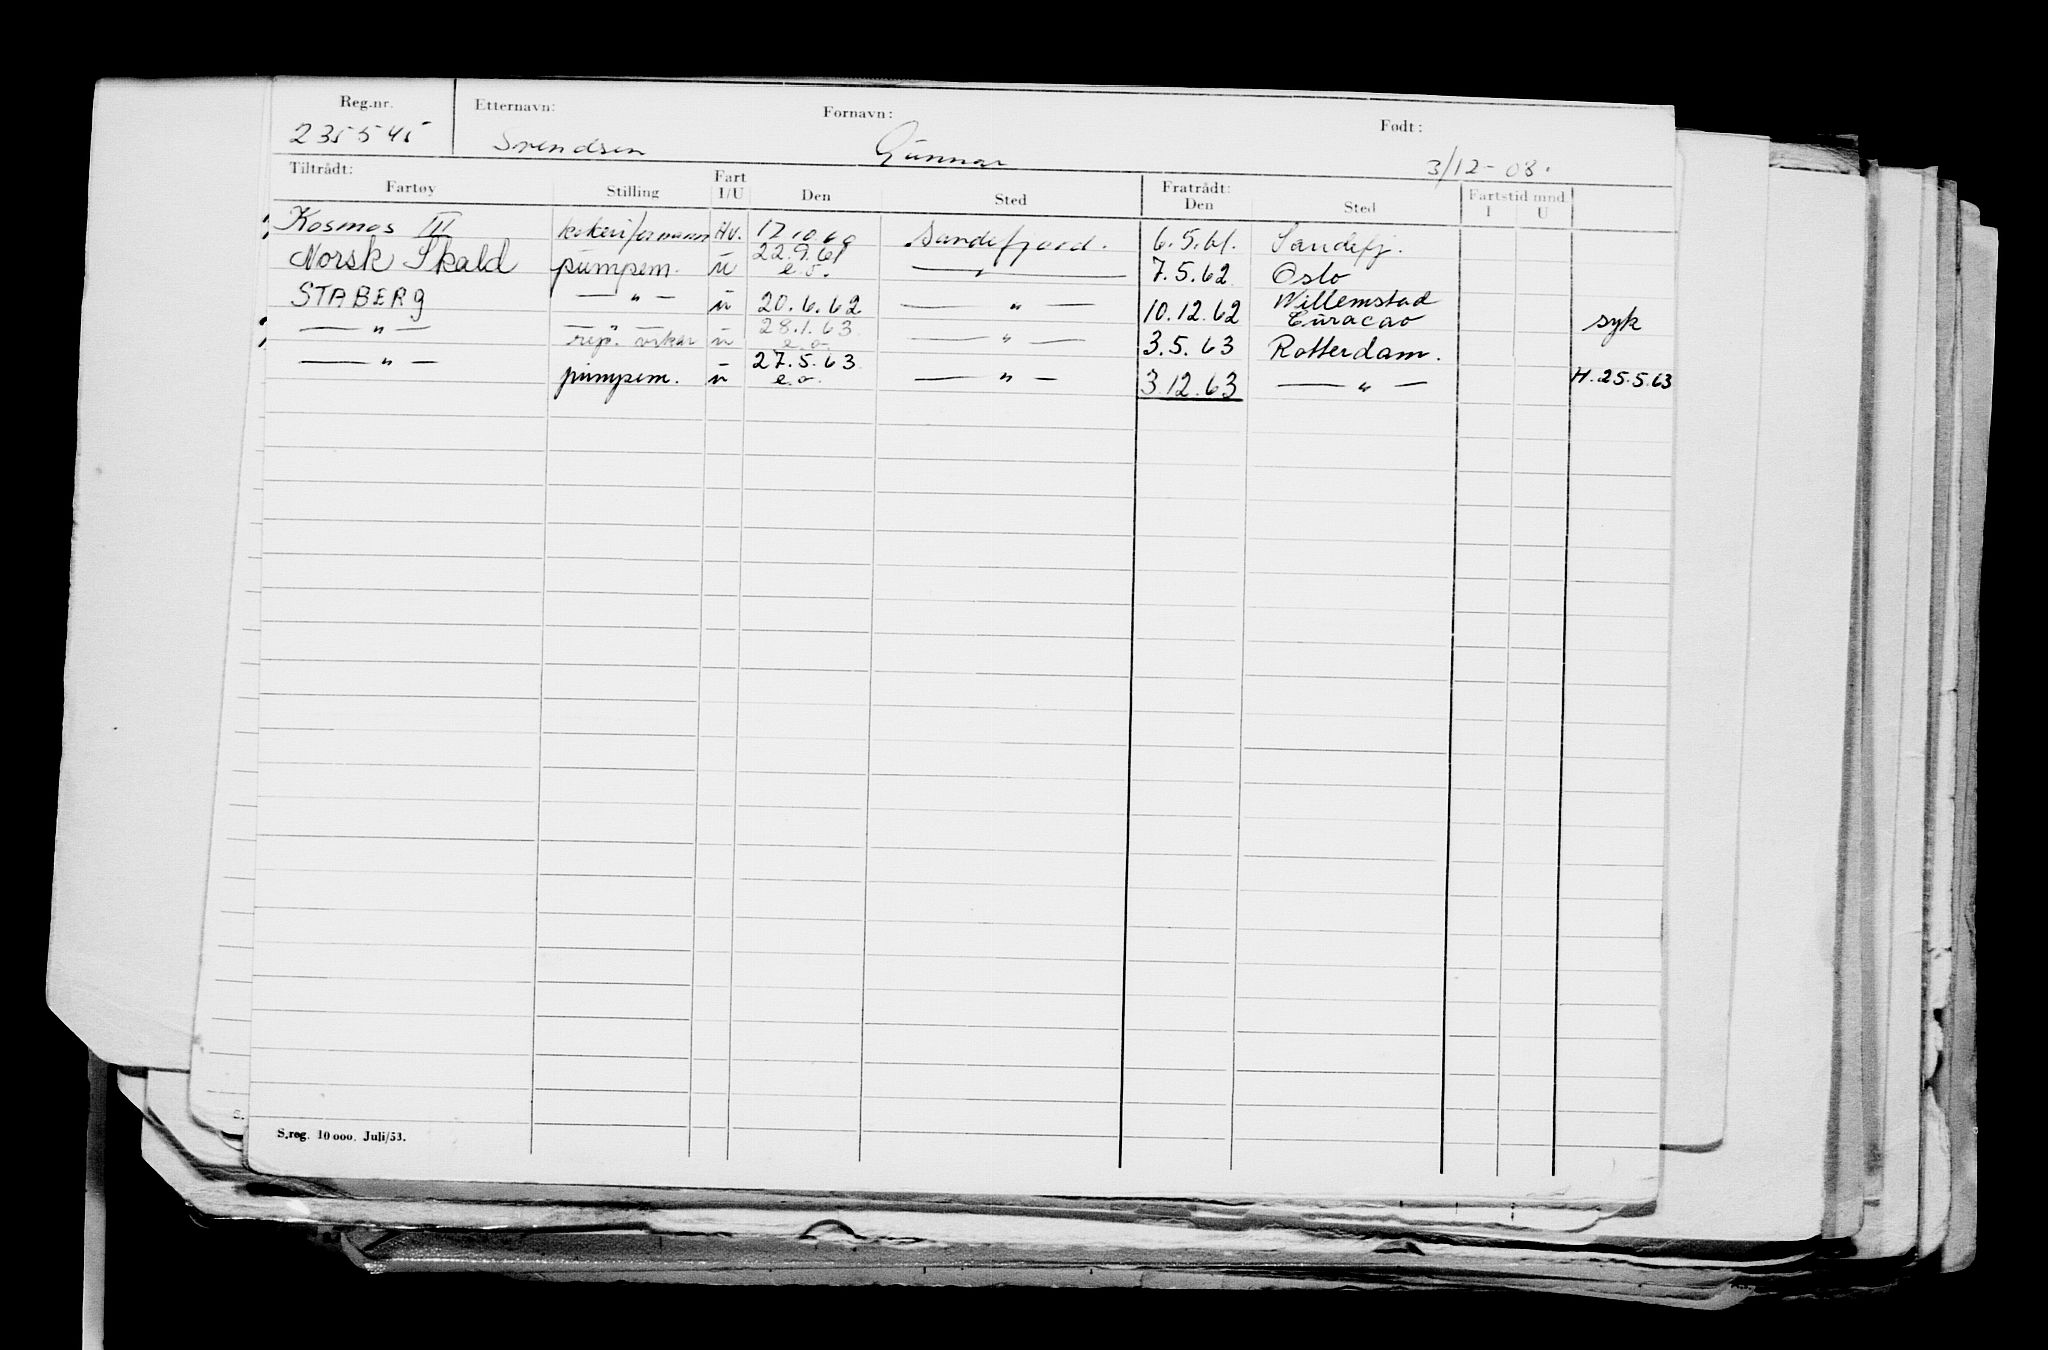 Reg.nr. Etternavn: Fornavn: Født:
235545 Svendsen Gunnar 3/12-08.
Tiltrådt: Fratrådt:
Fartøy Stilling Fart I/U Den Sted Den Sted Fartstid mnd. I U
Kosmos III kokeriformann Hv. 17.10.60 Sandefjord. 6.5.61. Sandefj.
Norsk Skald pumpem. u 22.9.61 e.o. — " — 7.5.62 Oslo
STABERG — " — u 20.6.62 — " — 10.12.62 Willemstad Curacao syk
— " — — " — rep. u 28.1.63 e.o. — " — 3.5.63 Rotterdam.
— " — pumpem. u 27.5.63 e.o. — " — 3.12.63 — " — H. 25.5.63
S.reg. 10 000. Juli/53.